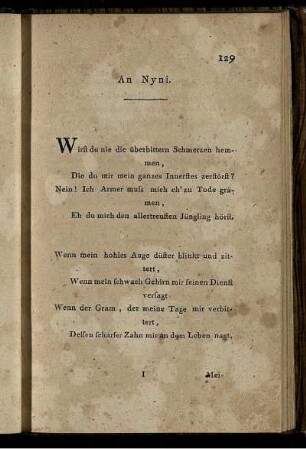 129
An Nyni.
Wirst du nie die überbittern Schmerzen hem-
men,
Die du mir mein ganzes Innerstes zerstörst?
Nein! Ich Armer muss mich eh' zu Tode grä-
men,
Eh du mich den allertreusten Jüngling hörst.
Wenn mein hohles Auge düster blinkt und zit-
tert,
Wenn mein schwach Gehirn mir seinen Dienst
versagt
Wenn der Gram, der meine Tage mir verbit-
tert,
Dessen scharfer Zahn mir an dem Leben nagt,
I
Mei-